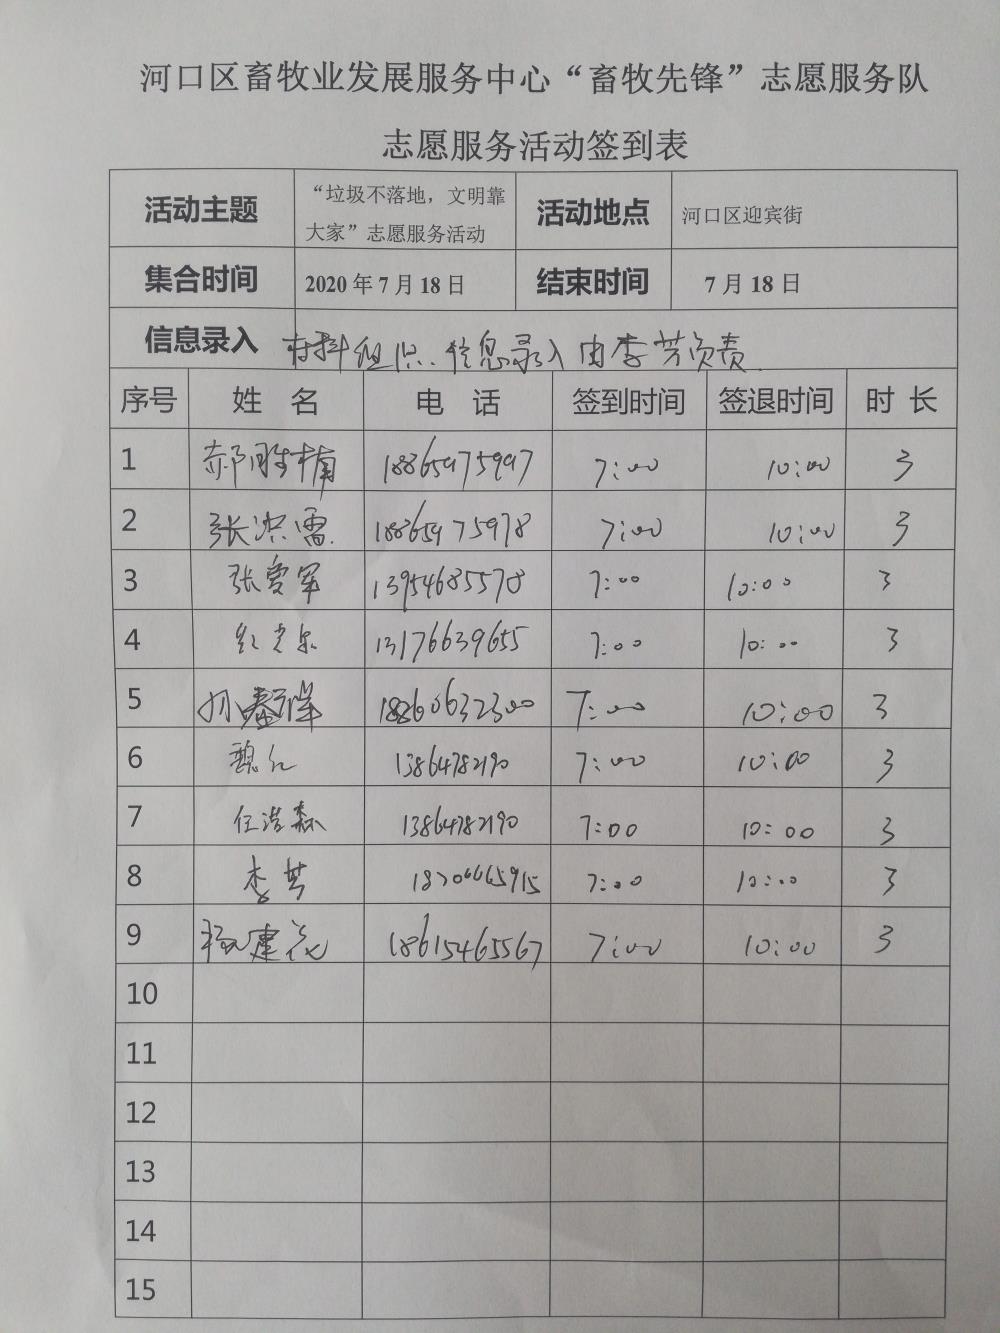 河口区畜牧业发展服务中心“畜牧先锋”志愿服务队
志愿服务活动签到表
活动主题 “垃圾不落地，文明靠大家”志愿服务活动 活动地点 河口区迎宾街
集合时间 2020年7月18日 结束时间 7月18日
信息录入 材料组织、信息录入由李芳负责.
序号 姓名 电话 签到时间 签退时间 时长
1 郝胜楠 18865975997 7:00 10:00 3
2 张洪雷 18865975978 7:00 10:00 3
3 张爱军 13954685578 7:00 10:00 3
4 13176639655 7:00 10:00 3
5 18260632300 7:00 10:00 3
6 魏红 13864782190 7:00 10:00 3
7 任浩森 13864782190 7:00 10:00 3
8 李芳 18706665915 7:00 10:00 3
9 杨建花 18615465567 7:00 10:00 3
10
11
12
13
14
15